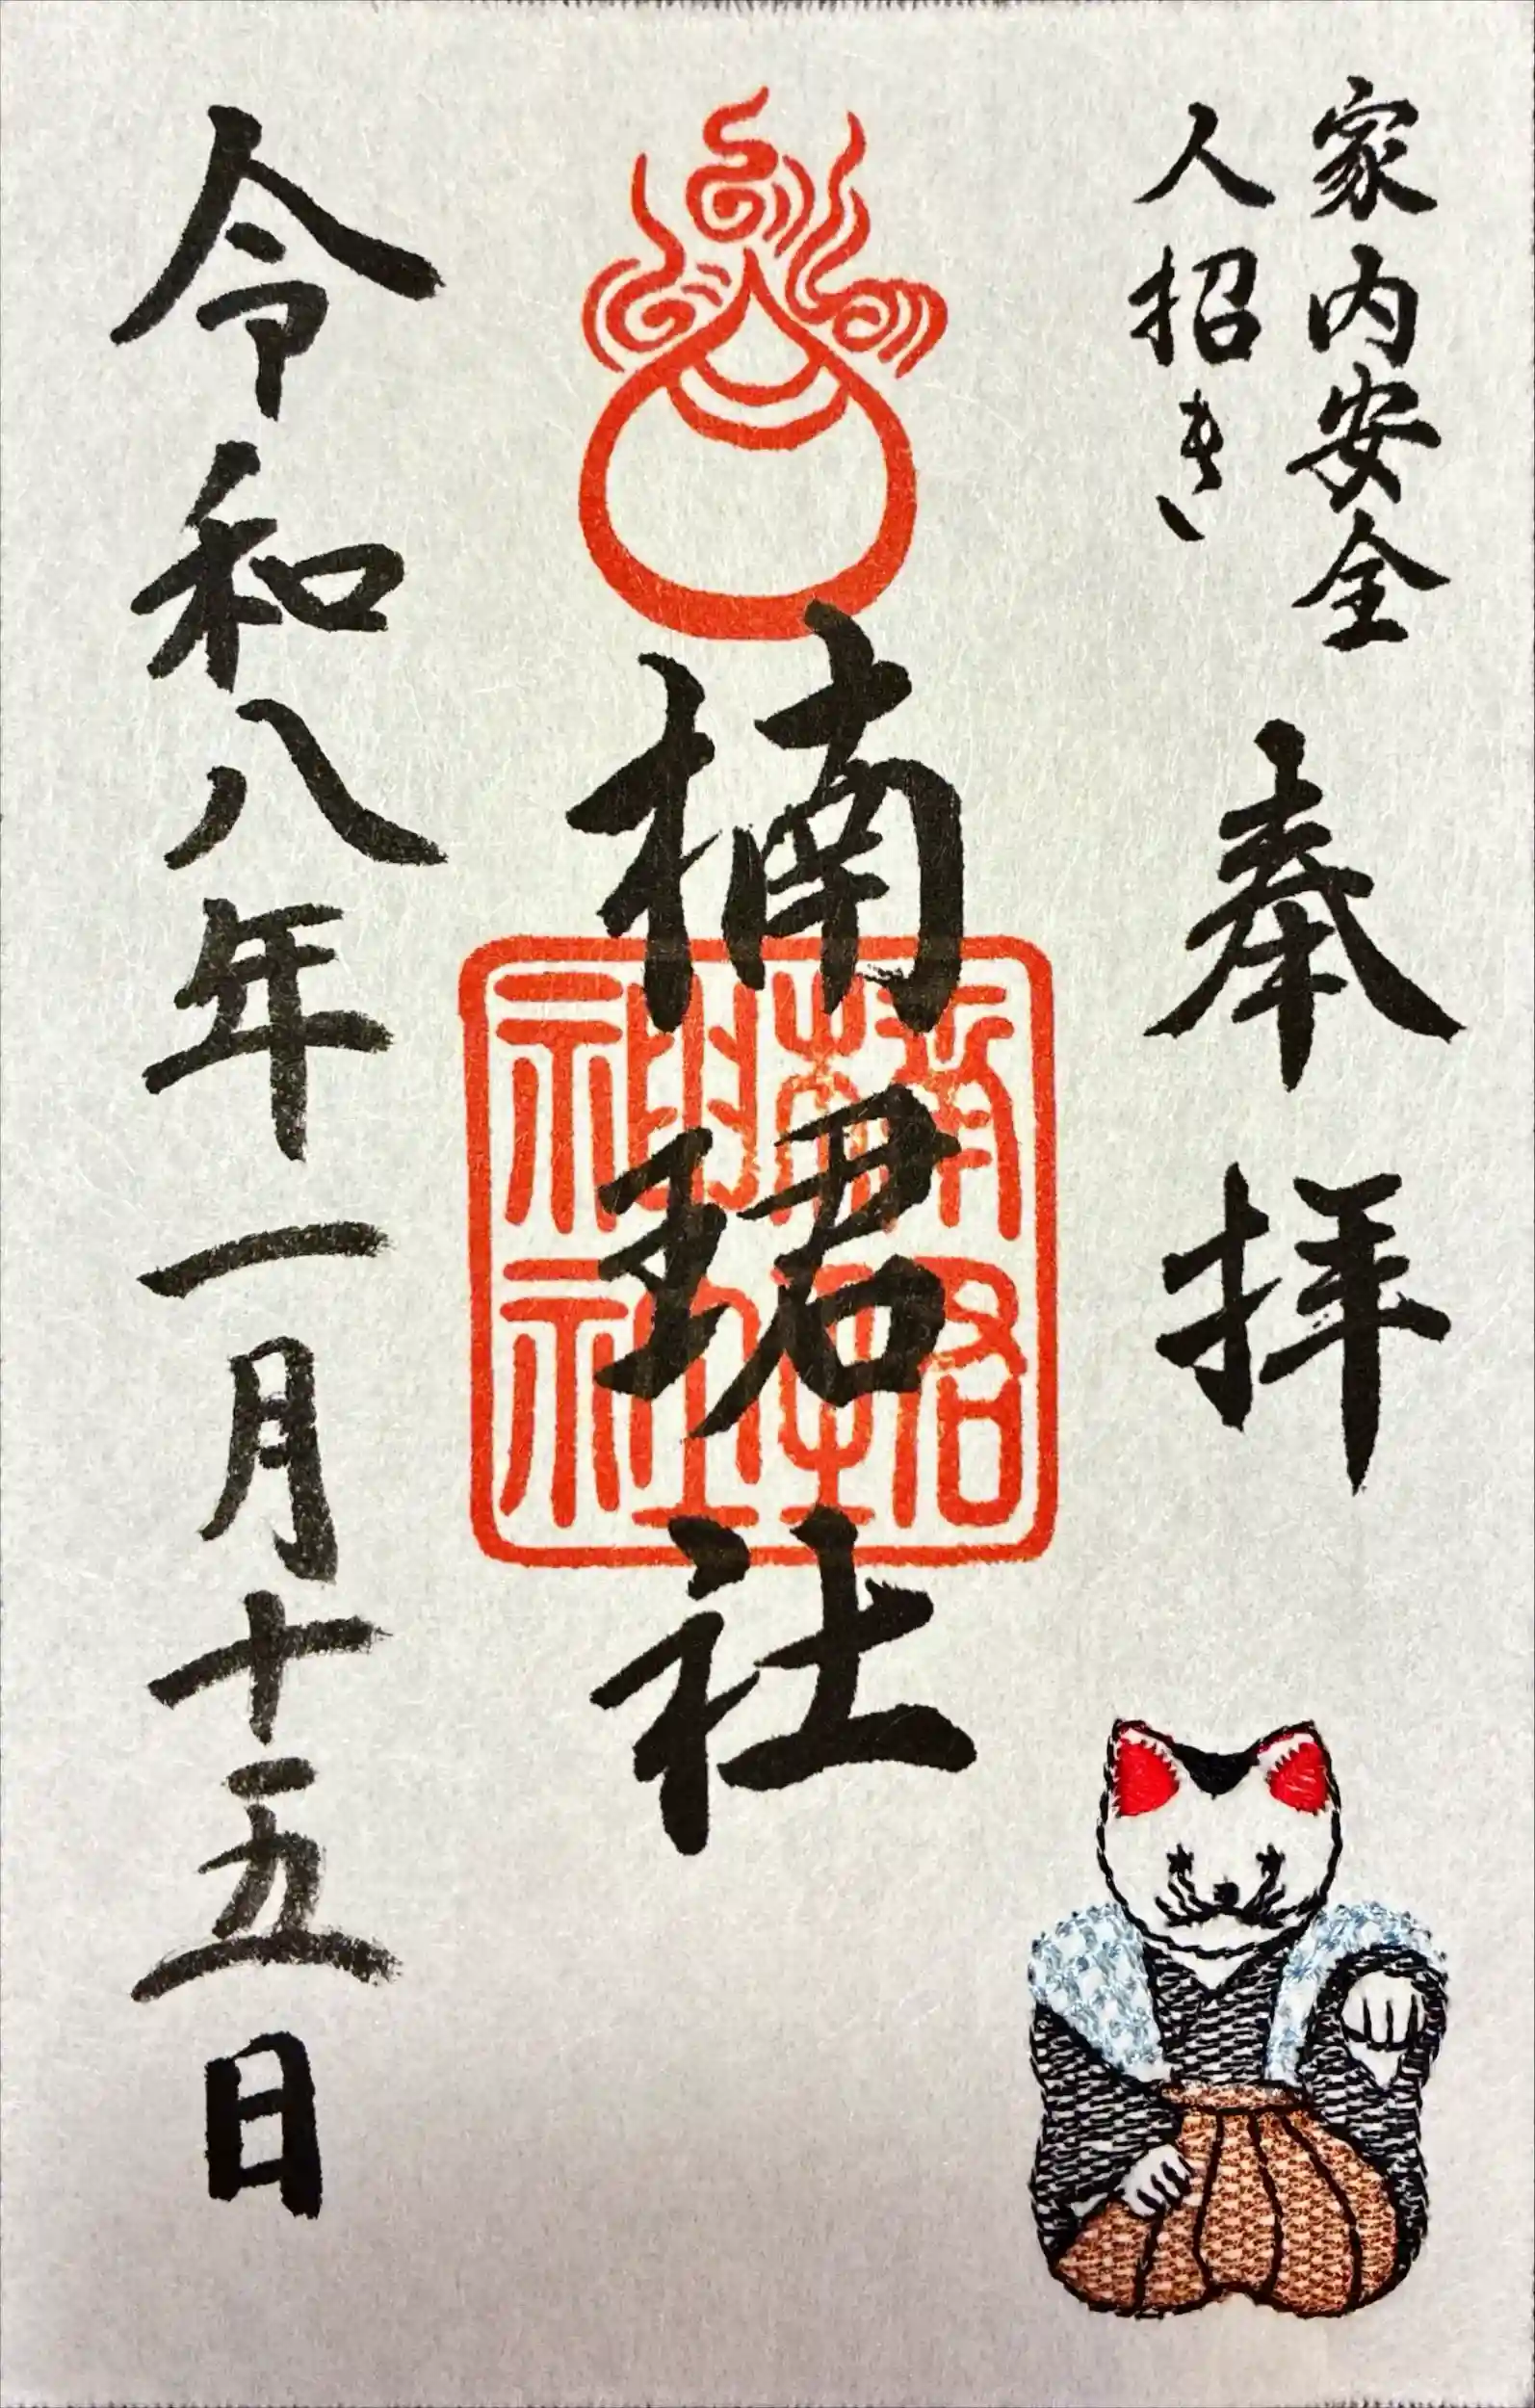 家内安全
人招き
奉拝
楠珺社
楠珺神社
令和八年一月十五日